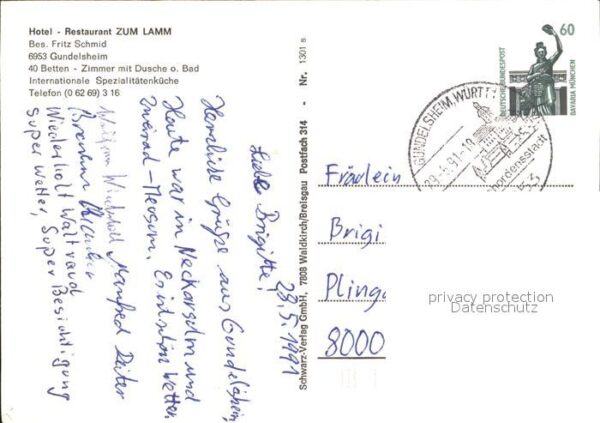 Hotel - Restaurant ZUM LAMM
Bes. Fritz Schmid
6953 Gundelsheim
40 Betten - Zimmer mit Dusche o. Bad
Internationale Spezialitätenküche
Telefon (0 62 69) 3 16
28.5.1991
Liebe Brigitte,
Herzliche Grüße aus Gundelsheim
Heute war in Neckarsulm und
Zweirad-Museum. Es ist schön Wetter
Manfred Dieter
Wiederholt Waltraud
Super Wetter, Super Besichtigung
Schwarz-Verlag GmbH, 7808 Waldkirch/Breisgau Postfach 314 - Nr. 1301 s
60
DEUTSCHE BUNDESPOST
BAVARIA MÜNCHEN
GUNDELSHEIM, WÜRTT
Fräulein
Brigi
Pling
8000
privacy protection
Datenschutz